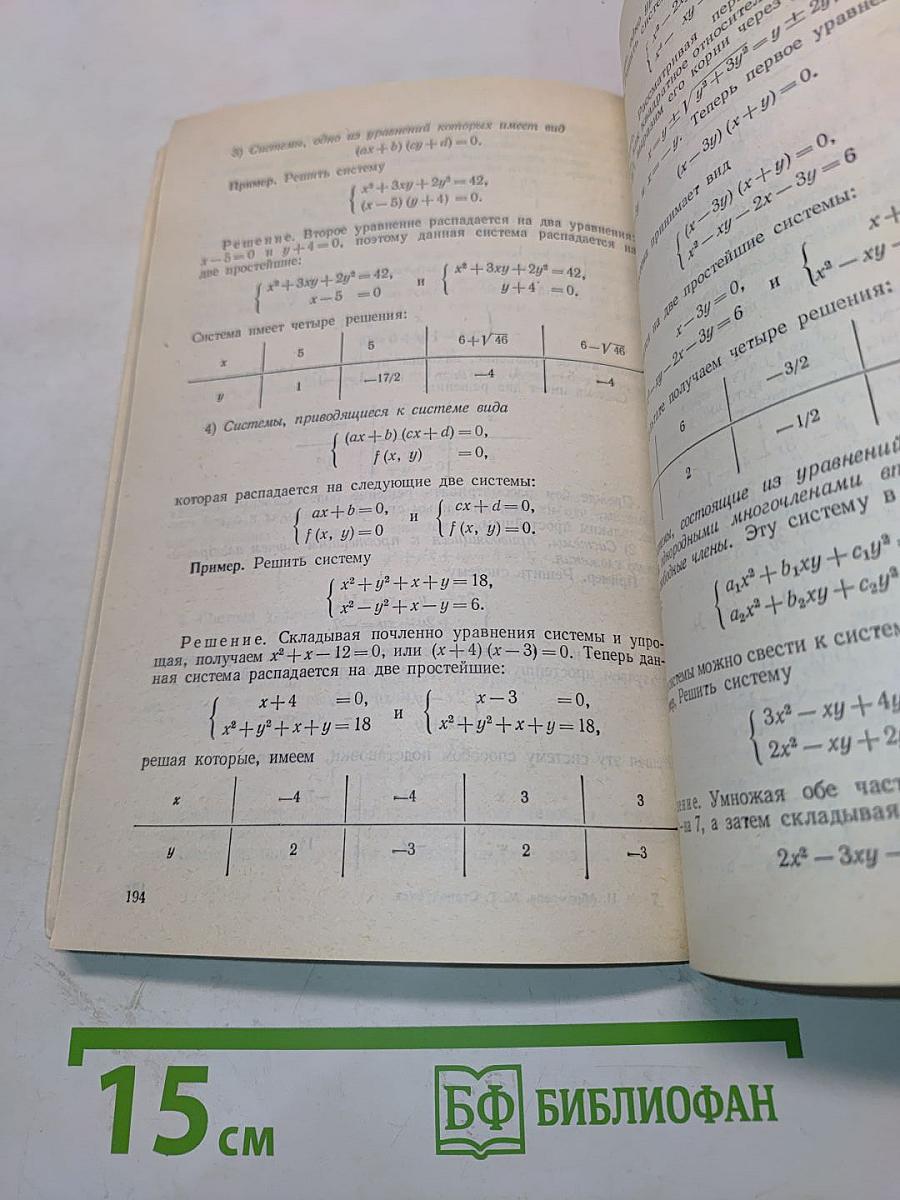 3) Системы, одно из уравнений которых имеет вид
(ax+b) (cy+d)=0.
Пример. Решить систему
x²+3xy+2y²=42,
(x−5) (y+4)=0.
Решение. Второе уравнение распадается на два уравнения:
x−5=0 и y+4=0, поэтому данная система распадается на
две простейшие:
x²+3xy+2y²=42, и x²+3xy+2y²=42,
x−5 =0 y+4 =0.
Система имеет четыре решения:
x 5 5 6+√46 6−√46
y 1 −17/2 −4 −4
4) Системы, приводящиеся к системе вида
(ax+b) (cx+d)=0,
f (x, y) =0,
которая распадается на следующие две системы:
ax+b=0, и cx+d=0,
f (x, y)=0 f (x, y)=0.
Пример. Решить систему
x²+y²+x+y=18,
x²−y²+x−y=6.
Решение. Складывая почленно уравнения системы и упро-
щая, получаем x²+x−12=0, или (x+4) (x−3)=0. Теперь дан-
ная система распадается на две простейшие:
x+4 =0, и x−3 =0,
x²+y²+x+y=18 x²+y²+x+y=18,
решая которые, имеем
x −4 −4 3 3
y 2 −3 2 −3
194
x=−y. Теперь первое уравне
(x−3y) (x+y)=0.
принимает вид
(x−3y) (x+y)=0,
x²−xy−2x−3y=6
на две простейшие системы:
x−3y=0, и x+
−xy−2x−3y=6 x²−xy−
получаем четыре решения:
6 −3/2
2 −1/2
состоящие из уравнений
однородными многочленами
члены. Эту систему в
a₁x²+b₁xy+c₁y²
a₂x²+b₂xy+c₂y²
можно свести к систем
Решить систему
3x²−xy+4y
2x²−xy+2y
Умножая обе час
7, а затем складывая
2x²−3xy−
15 см
БФ БИБЛИОФАН